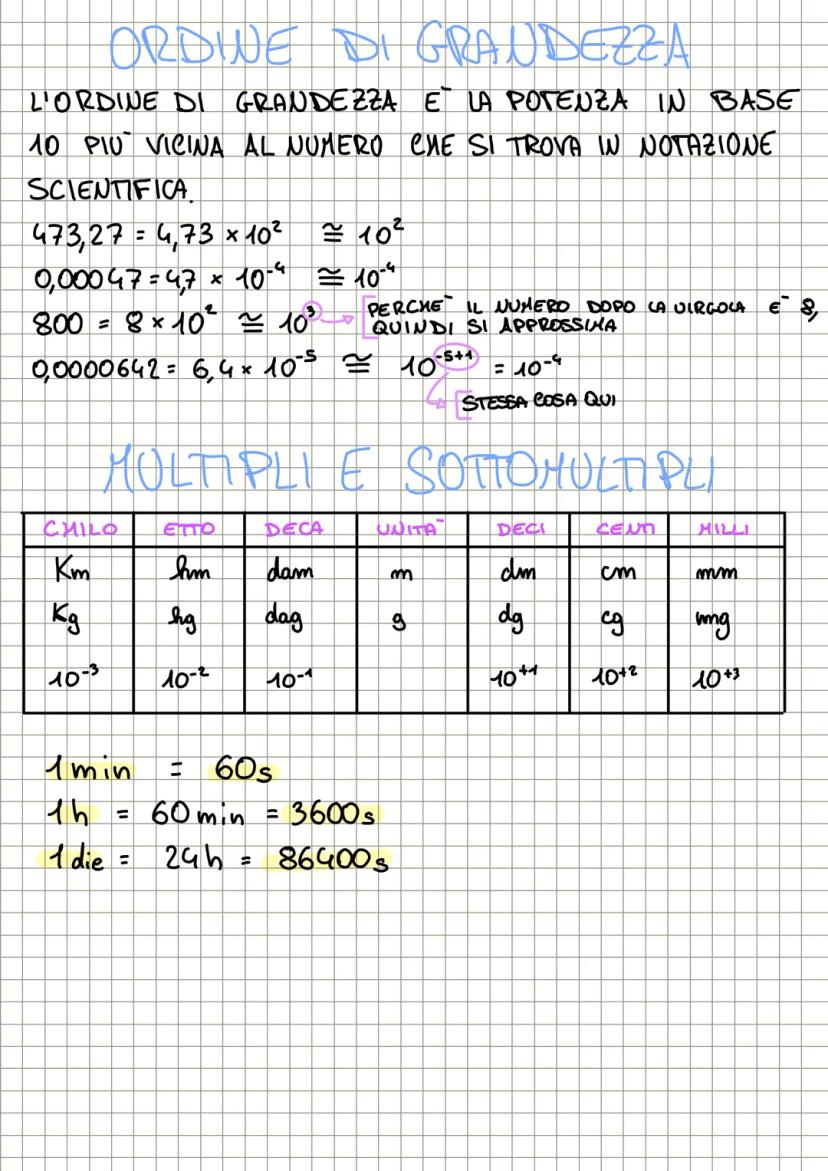 ORDINE DI GRANDEZZA
L'ORDINE DI GRANDEZZA E¯ LA POTENZA IN BASE
10 PIU¯ VICINA AL NUMERO CHE SI TROVA IN NOTAZIONE
SCIENTIFICA.
473,27 = 4,73 × 10² ≅ 10²
0,00047 = 4,7 × 10⁻⁴ ≅ 10⁻⁴
800 = 8 × 10² ≅ 10³ → [PERCHE¯ IL NUMERO DOPO LA VIRGOLA E¯ 8,
QUINDI SI APPROSSIMA
0,0000642 = 6,4 × 10⁻⁵ ≅ 10⁻⁵⁺¹ = 10⁻⁴
[STESSA COSA QUI
MULTIPLI E SOTTOMULTIPLI
CHILO ETTO DECA UNITA¯ DECI CENTI MILLI
Km hm dam m dm cm mm
Kg hg dag g dg cg mg
10⁻³ 10⁻² 10⁻¹ 10⁺¹ 10⁺² 10⁺³
1 min = 60s
1h = 60 min = 3600s
1 die = 24h = 86400s